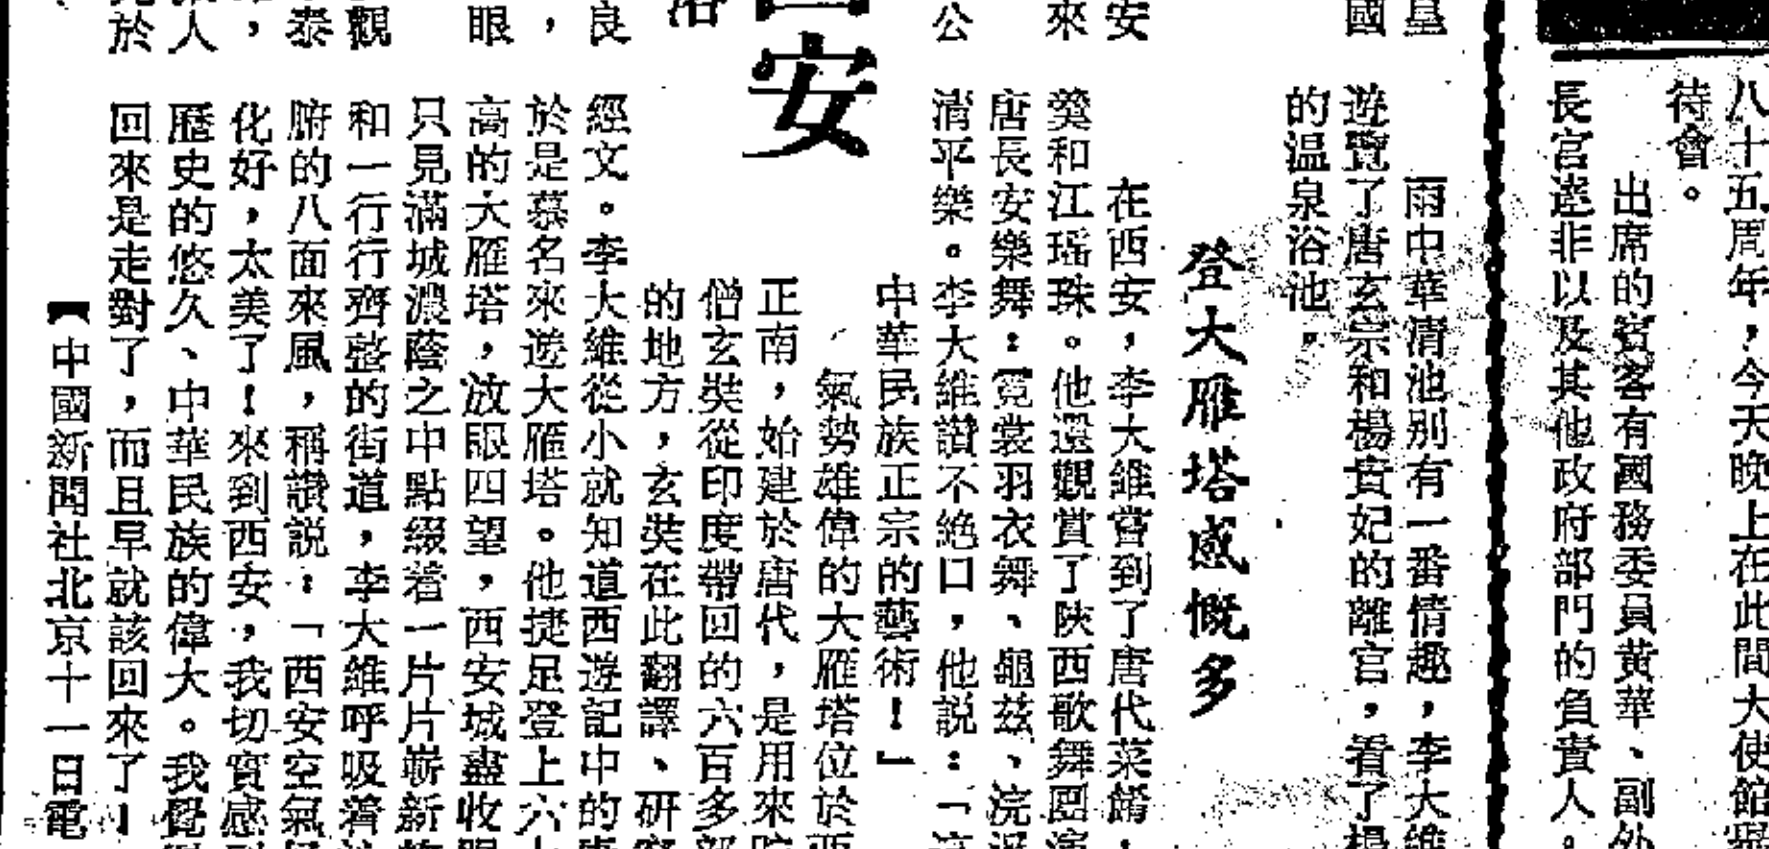 八十五周年，今天晚上在此間大使館
待會。
出席的賓客有國務委員黃華、副外
長宮達非以及其他政府部門的負責人。
皇
國
雨中華清池别有一番情趣，李大維
遊覽了唐玄宗和楊貴妃的離宮，看了楊
的温泉浴池。
登大雁塔感慨多
安
來
公
在西安，李大維嘗到了唐代菜餚，
羹和江瑤珠。他還觀賞了陝西歌舞團演
唐長安樂舞：霓裳羽衣舞、龜茲、浣
清平樂。李大維讚不絶口，他説：「這
中華民族正宗的藝術！」
氣勢雄偉的大雁塔位於西
正南，始建於唐代，是用來
僧玄奘從印度帶回的六百多部
的地方，玄奘在此翻譯、研究
安
浴
良
，
眼
觀
泰
，
人
於
經文。李大維從小就知道西遊記中的唐
於是慕名來遊大雁塔。他捷足登上六十
高的大雁塔，放眼四望，西安城盡收眼
只見滿城濃蔭之中點綴着一片片嶄新的
和一行行齊整的街道，李大維呼吸着沁
腑的八面來風，稱讚説：「西安空氣
化好，太美了！來到西安，我切實感到
歷史的悠久、中華民族的偉大。我覺
回來是走對了，而且早就該回來了！
【中國新聞社北京十一日電